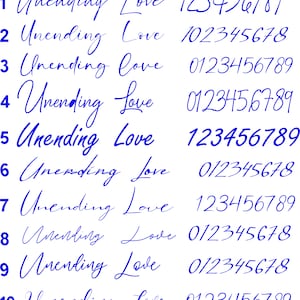 1 Unending Love 123456789
2 Unending Love 1023456789
3 Unending Love 0123456789
4 Unending Love 0123456789
5 Unending Love 123456789
6 Unending Love 0123456789
7 Unending Love 123456789
8 Unending Love 0123456789
9 Unending Love 0123456789
10 Unending Love